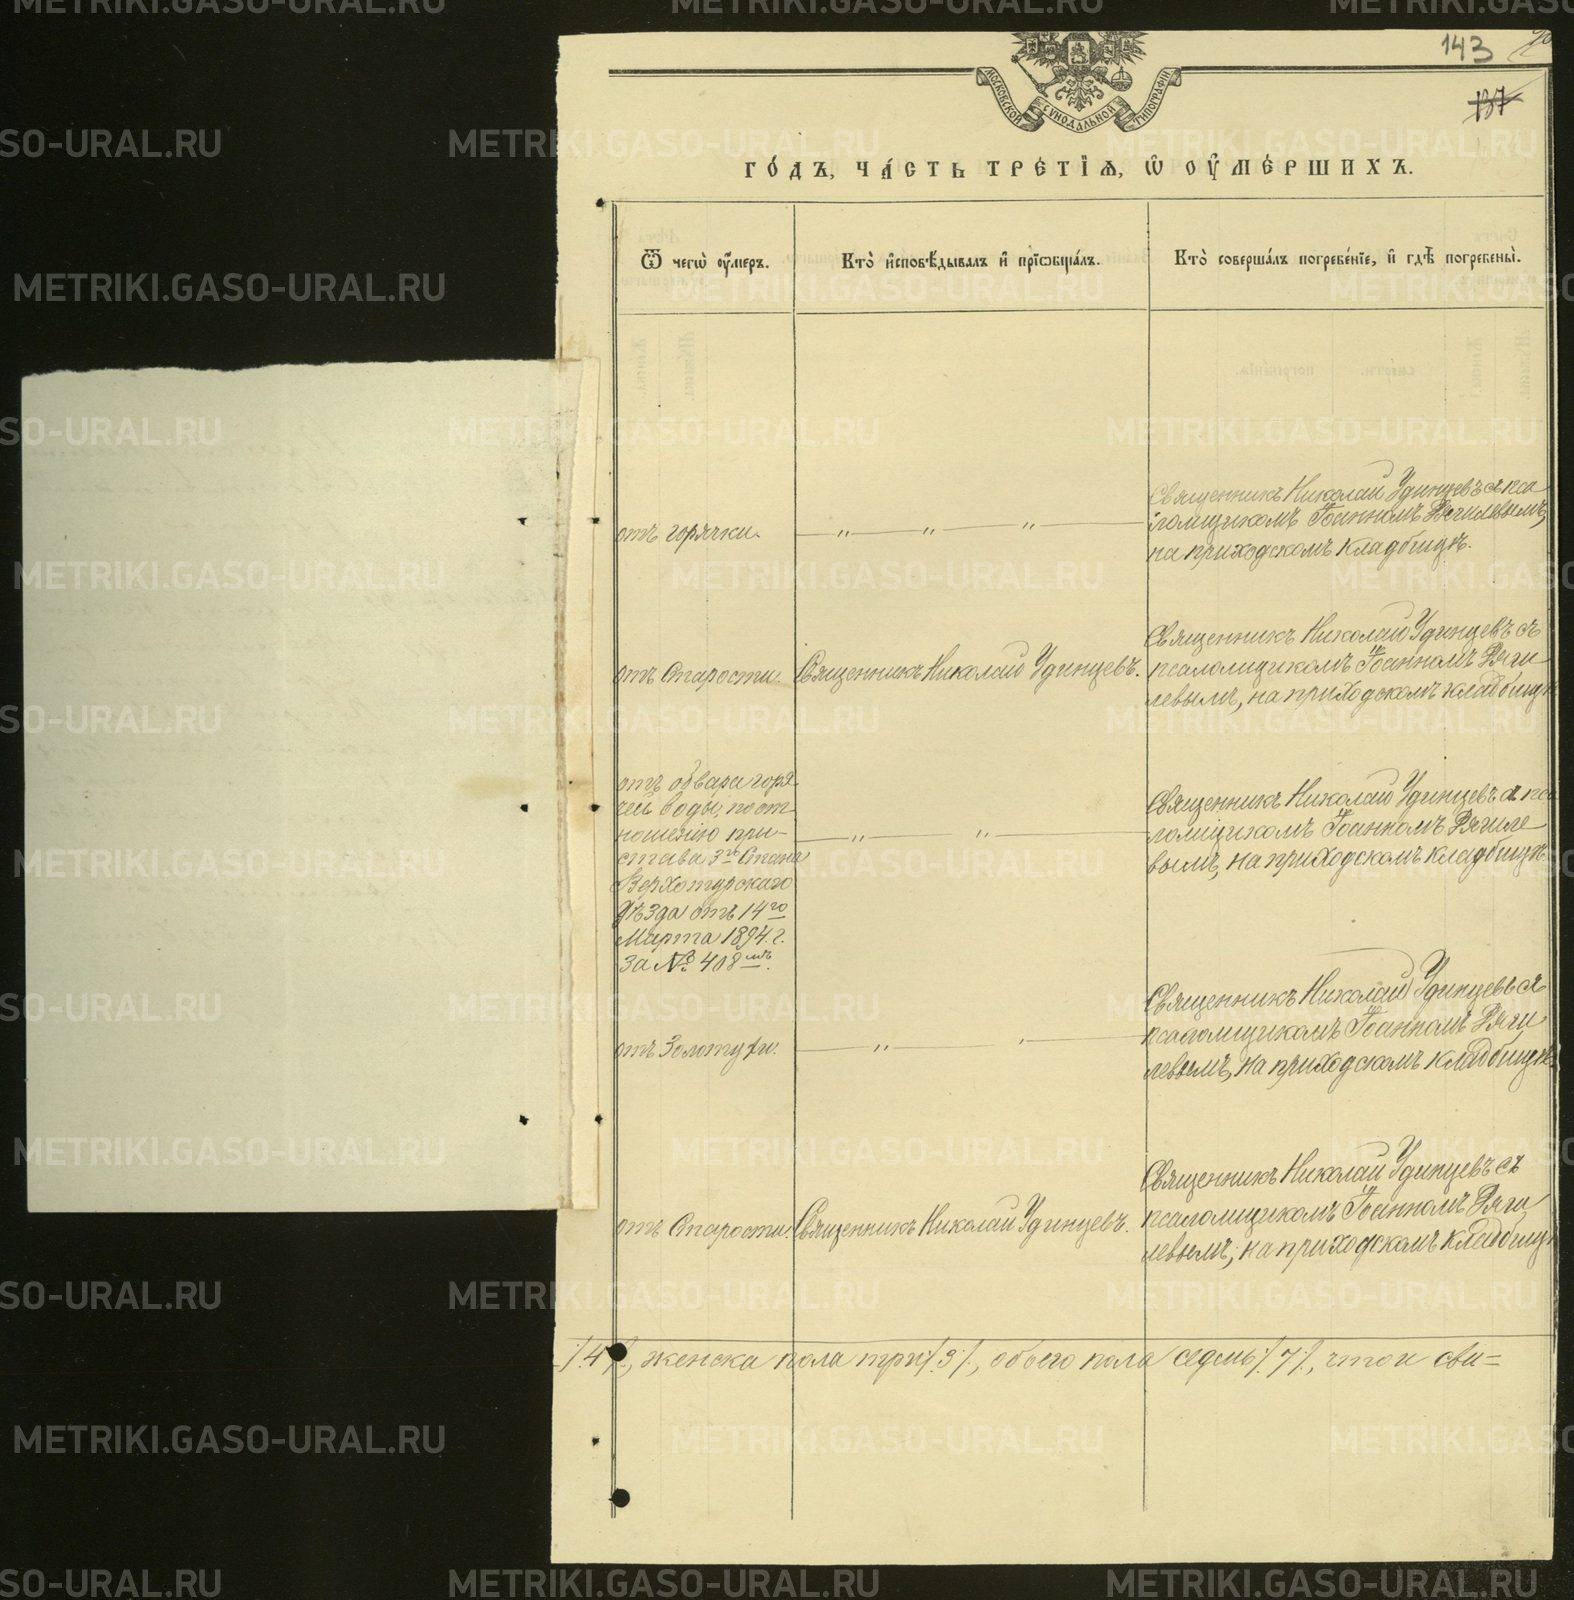 143
187
МОСКОВСКОЙ СѴНОДАЛЬНОЙ ТИПОГРАФІИ
ГО́ДЪ, ЧА́СТЬ ТРЕ́ТІѦ, Ѡ҆ ОУ҆МЕ́РШИХЪ.
Ѿ чегѡ̀ оу҆́меръ.
Кто̀ и҆сповѣ́дывалъ и҆ прїѡбща́лъ.
Кто̀ соверша́лъ погребе́нїе, и҆ гдѣ̀ погребены̀.
отъ горячки.
— „ — „ — „ —
Священникъ Николай Удинцевъ съ пса
ломщикомъ Іоанномъ Рягилевымъ,
на приходскомъ кладбищѣ.
отъ Старости.
Священникъ Николай Удинцевъ.
Священникъ Николай Удинцевъ съ
псаломщикомъ Іоанномъ Ряги
левымъ, на приходскомъ кладбищѣ
отъ обвара горя
чей воды, по от
ношенію при-
става 3го Стана
Верхотурскаго
уѣзда отъ 14го
Марта 1894. г.
за № 408мъ.
— „ — „ —
Священникъ Николай Удинцевъ съ пса
ломщикомъ Іоанномъ Рягиле
вымъ, на приходскомъ кладбищѣ.
отъ Золотухи.
— „ — „ —
Священникъ Николай Удинцевъ съ
псаломщикомъ Іоанномъ Ряги
левымъ, на приходскомъ кладбищѣ.
отъ Старости.
Священникъ Николай Удинцевъ.
Священникъ Николай Удинцевъ съ
псаломщикомъ Іоанномъ Ряги
левымъ, на приходскомъ кладбищѣ
/.4./, женска пола три /.3./, обоего пола седмь /.7./, что и сви=
METRIKI.GASO-URAL.RU